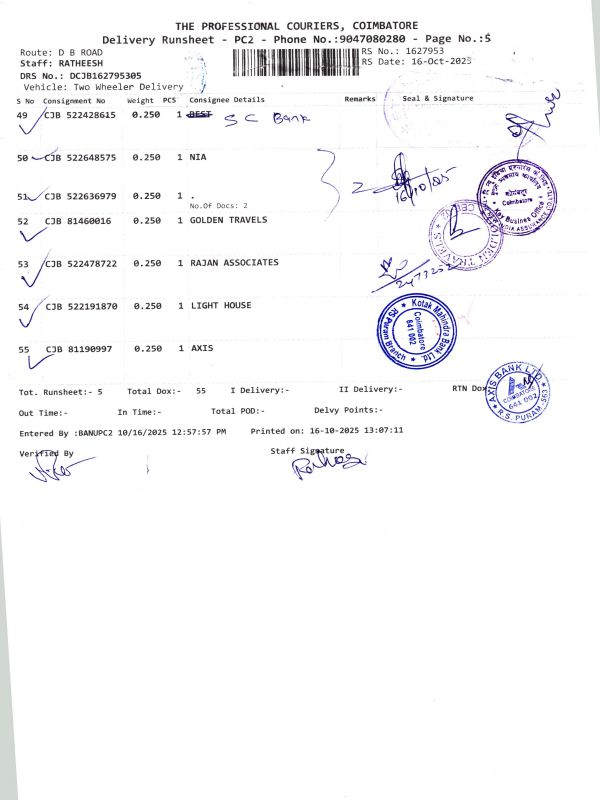 THE PROFESSIONAL COURIERS, COIMBATORE
Delivery Runsheet - PC2 - Phone No.:9047080280 - Page No.:5
Route: D B ROAD
RS No.: 1627953
Staff: RATHEESH
RS Date: 16-Oct-2025
DRS No.: DCJB162795305
Vehicle: Two Wheeler Delivery
S No Consignment No Weight PCS Consignee Details Remarks Seal & Signature
49 CJB 522428615 0.250 1 BEST S C Bank
50 CJB 522648575 0.250 1 NIA
2 16/10/25
51 CJB 522636979 0.250 1 .
No.Of Docs: 2
कोयम्बतूर
Coimbatore
Key Business Office
52 CJB 81460016 0.250 1 GOLDEN TRAVELS
GOLDEN TRAVELS
53 CJB 522478722 0.250 1 RAJAN ASSOCIATES
54 CJB 522191870 0.250 1 LIGHT HOUSE
Kotak Mahindra Bank Ltd.
Coimbatore
641 002
RS Puram Branch
55 CJB 81190997 0.250 1 AXIS
AXIS BANK LTD.
COIMBATORE
641 002
R.S. PURAM
Tot. Runsheet:- 5 Total Dox:- 55 I Delivery:- II Delivery:- RTN Dox
Out Time:- In Time:- Total POD:- Delvy Points:-
Entered By :BANUPC2 10/16/2025 12:57:57 PM Printed on: 16-10-2025 13:07:11
Verified By Staff Signature